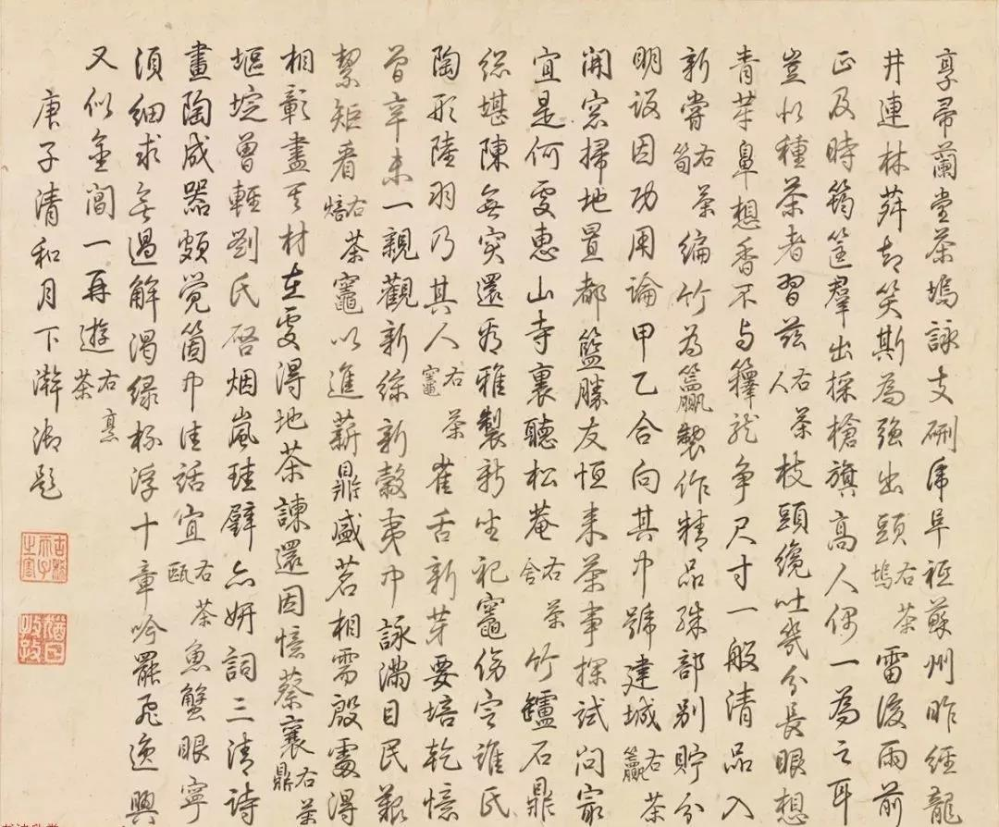 享帚蘭堂茶塢詠支硎虎阜秪蘇州昨經龍
井連林薜却笑斯為强出頭右茶塢雷後雨前
正及時筠筐羣出採槍旗高人偶一為之耳
豈似種茶者習茲右茶人枝頭纔吐幾分長眼想
青芽鼻想香不与籜龍爭尺寸一般清品入
新嘗右茶筍編竹為籯製作精品殊部别貯分
明設因功用論甲乙合向其中號建城右茶籯
開窓掃地置都籃勝友恒来茶事探試问最
宜是何處惠山寺裏聽松菴右茶舍竹罏石鼎
總堪陳無突還看雅製新坐祀竈傍定誰氏
陶形陸羽乃其人右茶竈雀舌新芽要培乾憶
曾辛未一親觀新絲新穀夷中詠滿目民艱
絜矩看右茶焙竈以進薪鼎盛茗相需殷處得
相彰盡其材在處得地茶諫還因憶蔡襄右茶鼎
堀埞曾輕劉氏啓烟嵐珪璧亦妍詞三清詩
畫陶成器頗覺箇中佳話宜右茶甌魚蟹眼寧
須細求無過解渴緑杯浮十章吟罷飛逸興
又似金閶一再遊右烹茶
庚子清和月下澣御題
古稀天子之寶
猶日孜孜